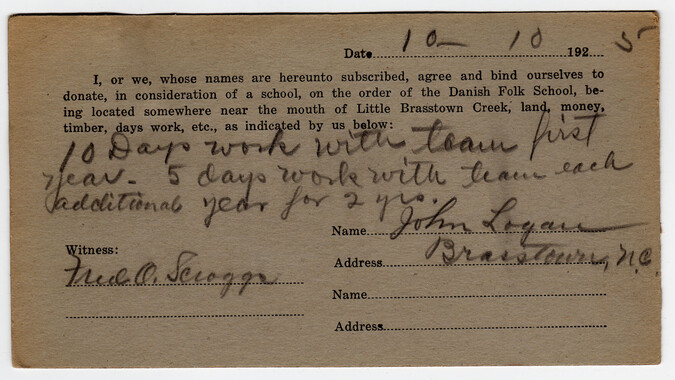 Date 10- 10 1925
I, or we, whose names are hereunto subscribed, agree and bind ourselves to
donate, in consideration of a school, on the order of the Danish Folk School, be-
ing located somewhere near the mouth of Little Brasstown Creek, land, money,
timber, days work, etc., as indicated by us below:
10 Days work with team first
year - 5 days work with team each
additional year for 2 yrs.
Name John Logan
Witness:
Address Brasstown, N.C.
Fred O. Scroggs
Name
Address